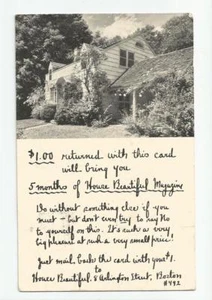 $1.00 returned with this card
will bring you
5 months of House Beautiful Magazine
Do without something else if you
must - but don't even try to say No
to yourself on this. It's such a very
big pleasure at such a very small price!
Just mail back the card with your $1.
to
House Beautiful. 8 Arlington Street, Boston